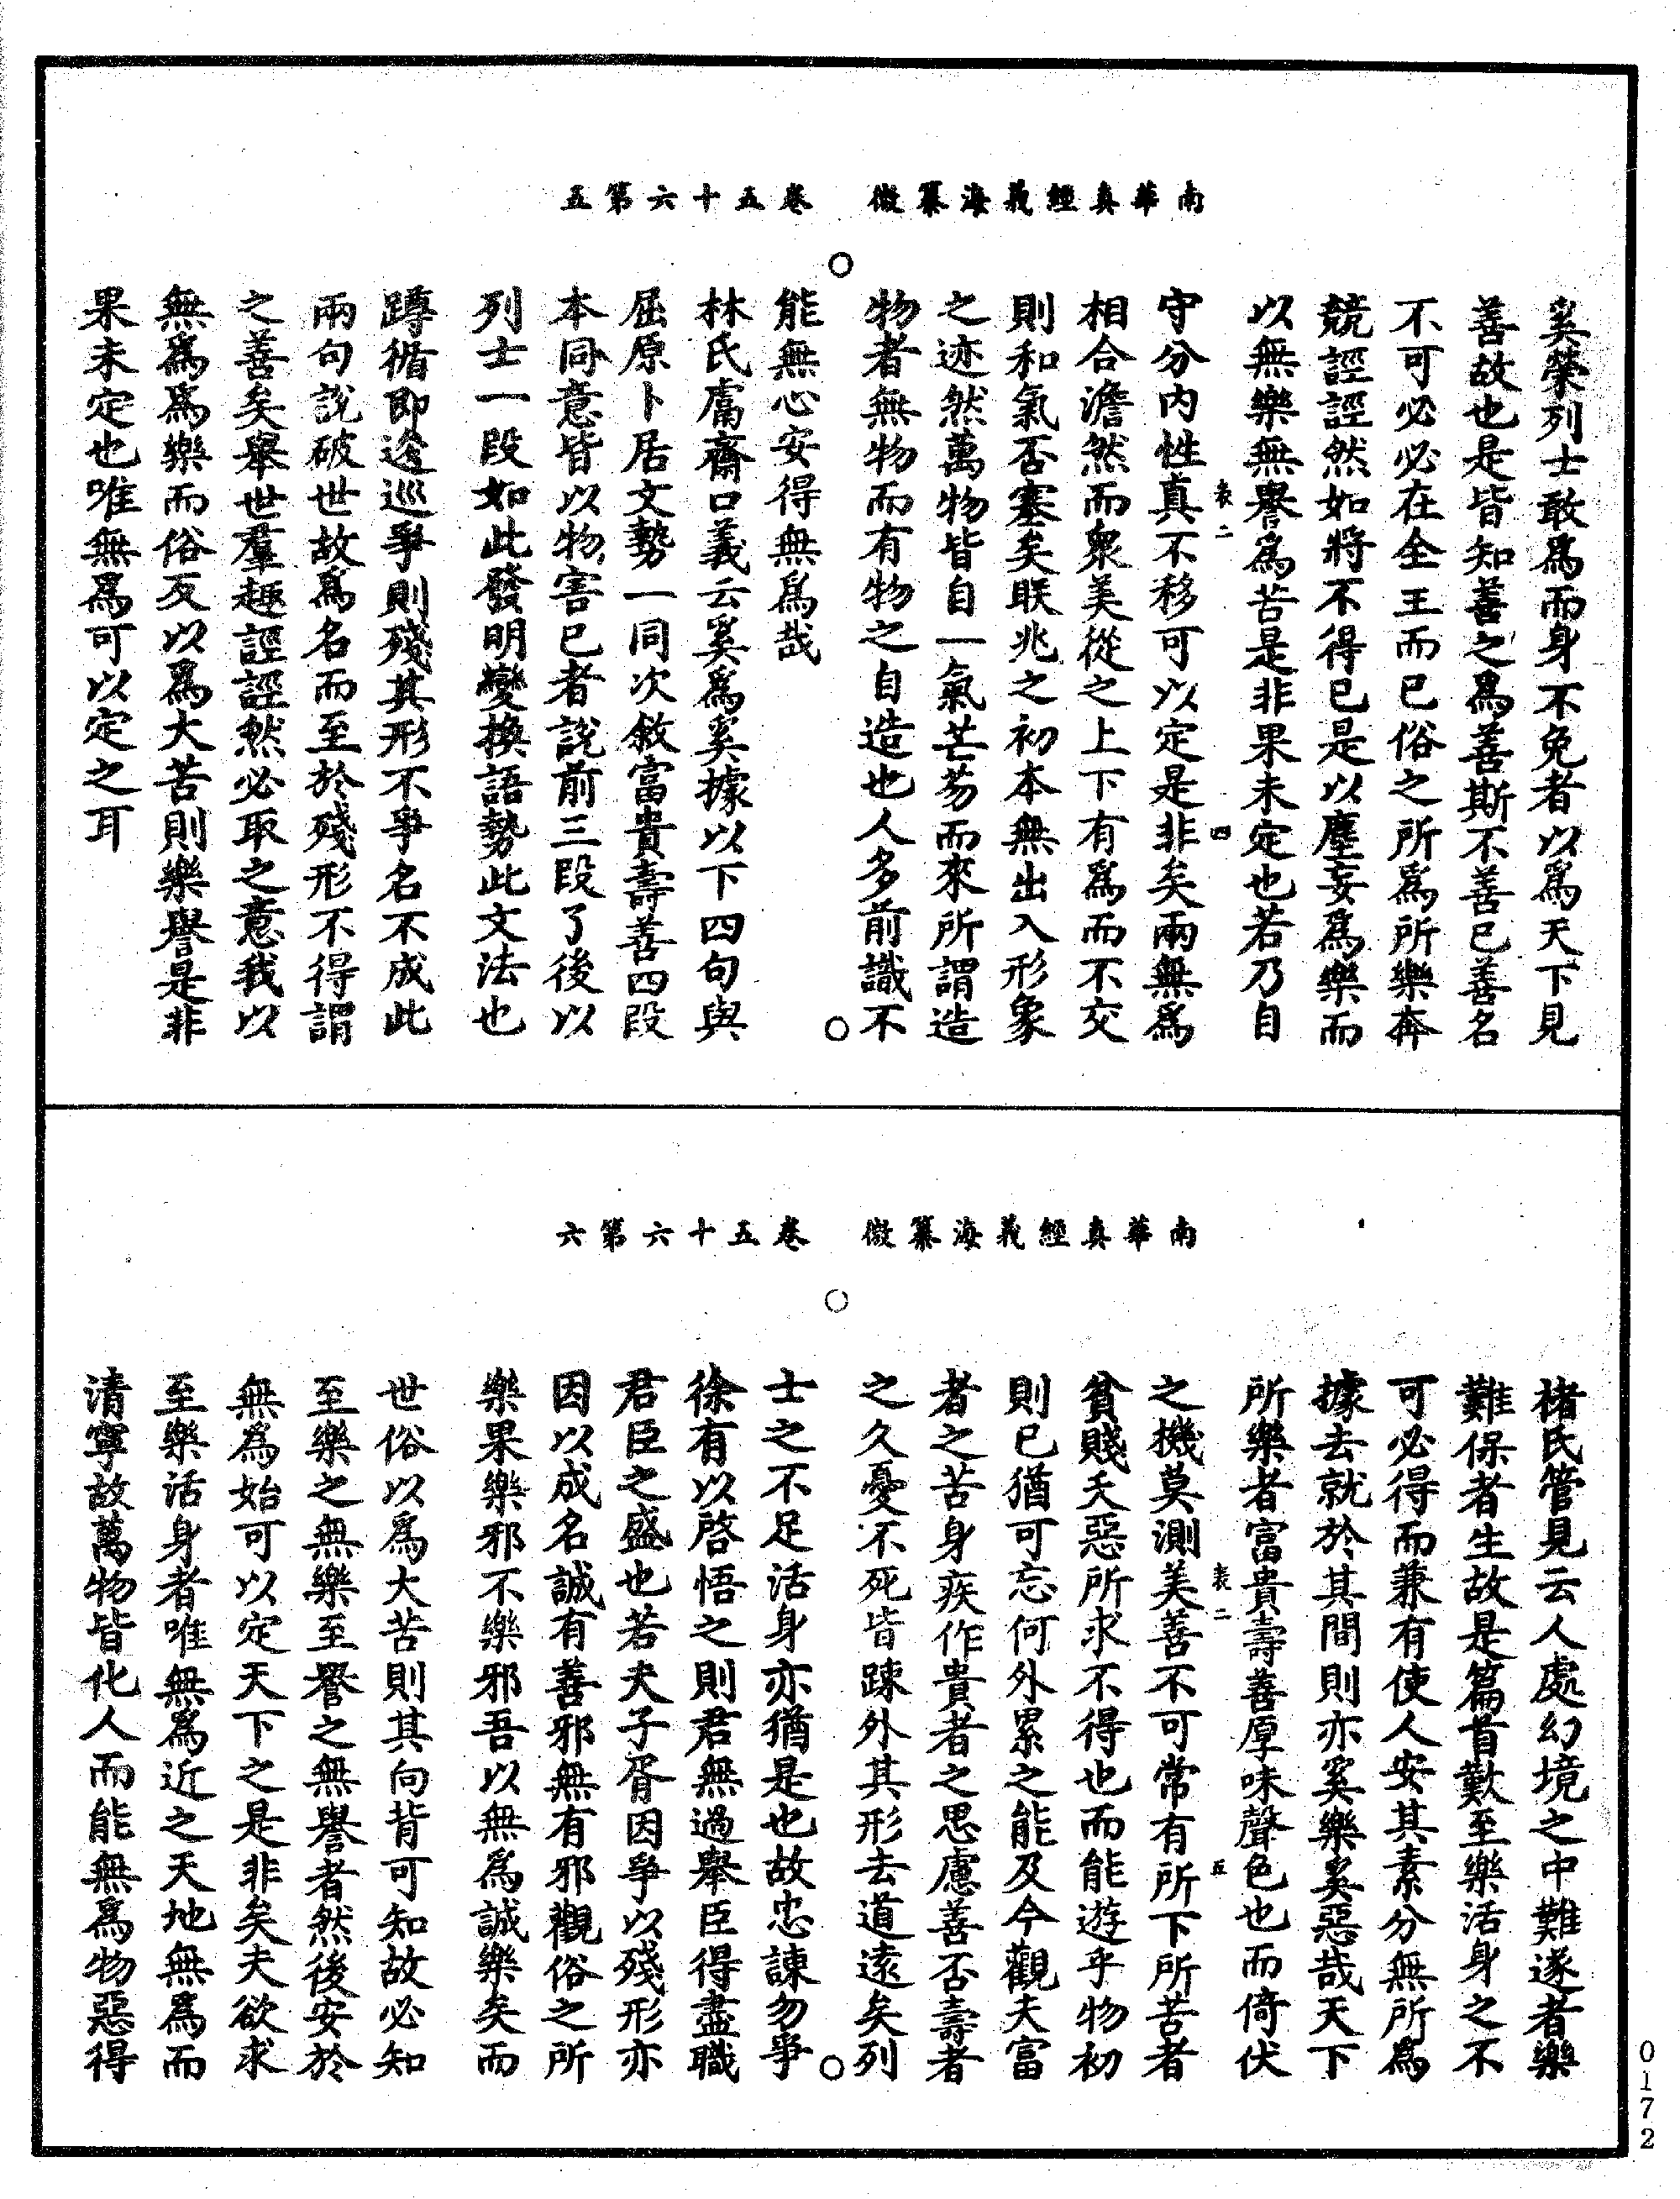 南華真經義海纂微　卷五十六第五
奚榮列士敢爲而身不免者以爲天下見
善故也是皆知善之爲善斯不善已善名
不可必必在全王而已俗之所爲所樂奔
競誙誙然如將不得已是以塵妄爲樂而
以無樂無譽爲苦是非果未定也若乃自
表二　四
守分內性真不移可以定是非矣兩無爲
相合澹然而衆美從之上下有爲而不交
則和氣否塞矣联兆之初本無出入形象
之迹然萬物皆自一氣芒芴而來所謂造
物者無物而有物之自造也人多前識不
能無心安得無爲哉
林氏鬳齋口義云奚爲奚據以下四句與
屈原卜居文勢一同次敘富貴壽善四段
本同意皆以物害已者說前三段了後以
列士一段如此發明變換語勢此文法也
蹲循即逡巡爭則殘其形不爭名不成此
兩句說破世故爲名而至於殘形不得謂
之善矣舉世羣趣誙誙然必取之意我以
無爲爲樂而俗反以爲大苦則樂譽是非
果未定也唯無爲可以定之耳
南華真經義海纂微　卷五十六第六
褚氏管見云人處幻境之中難遂者樂
難保者生故是篇首歎至樂活身之不
可必得而兼有使人安其素分無所爲
據去就於其間則亦奚樂奚惡哉天下
所樂者富貴壽善厚味聲色也而倚伏
表二　五
之機莫測美善不可常有所下所苦者
貧賤夭惡所求不得也而能遊乎物初
則已猶可忘何外累之能及今觀夫富
者之苦身疾作貴者之思慮善否壽者
之久憂不死皆踈外其形去道遠矣列
士之不足活身亦猶是也故忠諫勿爭
徐有以啓悟之則君無過舉臣得盡職
君臣之盛也若夫子胥因爭以殘形亦
因以成名誠有善邪無有邪觀俗之所
樂果樂邪不樂邪吾以無爲誠樂矣而
世俗以爲大苦則其向背可知故必知
至樂之無樂至譽之無譽者然後安於
無爲始可以定天下之是非矣夫欲求
至樂活身者唯無爲近之天地無爲而
清寧故萬物皆化人而能無爲物惡得
0172